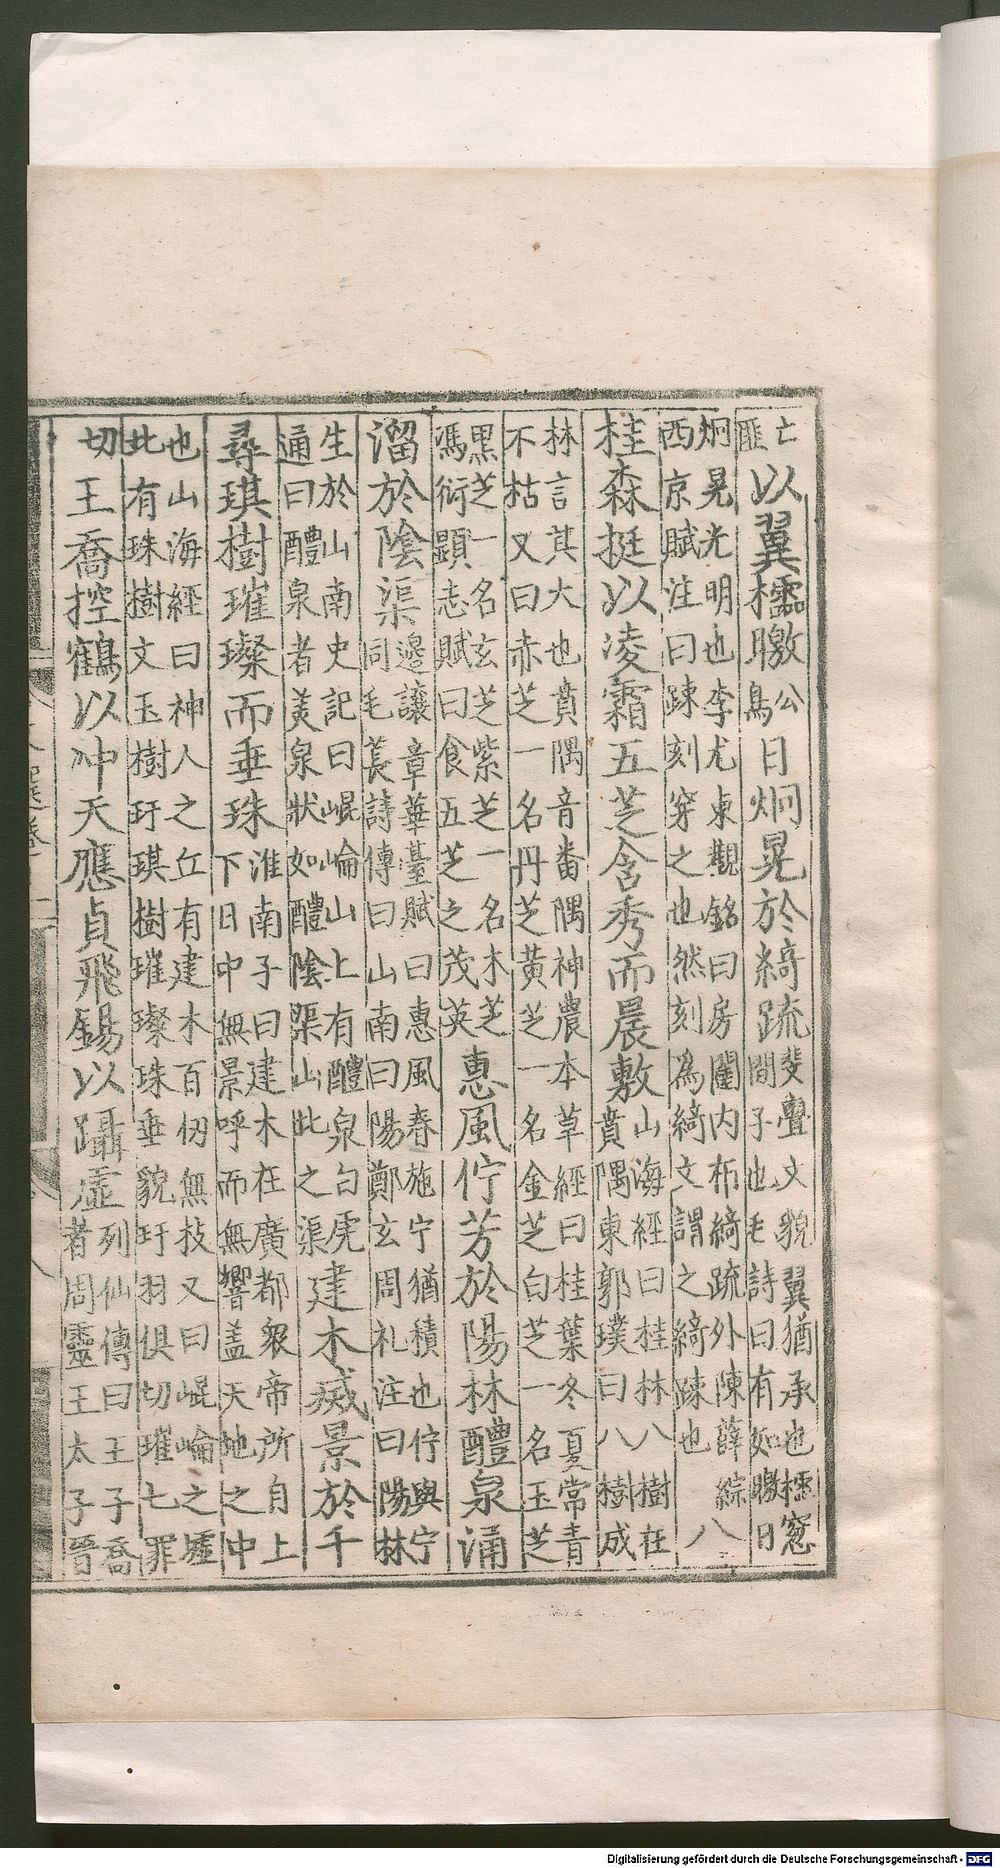 亡匪以翼櫺曒公鳥日炯晃於綺疏斐亹文貌翼猶承也櫺窓間子也毛詩曰有如曒日
炯晃光明也李尤東觀銘曰房闥内布綺疏外陳薛綜西京賦注曰疎刻穿之也然刻爲綺文謂之綺疎也八
桂森挺以凌霜五芝含秀而晨敷山海經曰桂林八樹在賁隅東郭璞曰八樹成
林言其大也賁隅音番隅神農本草經曰桂葉冬夏常青不枯又曰赤芝一名丹芝黄芝一名金芝白芝一名玉芝
黑芝一名玄芝紫芝一名木芝馮衍顯志賦曰食五芝之茂英惠風佇芳於陽林醴泉涌
溜於陰渠邊讓章華臺賦曰惠風春施宁猶積也佇與宁同毛萇詩傳曰山南曰陽鄭玄周礼注曰陽林
生於山南史記曰崐崘山上有醴泉白虎通曰醴泉者美泉狀如醴陰渠山北之渠建木烕景於千
尋琪樹璀璨而垂珠淮南子曰建木在廣都衆帝所自上下日中無景呼而無響盖天地之中
也山海經曰神人之丘有建木百仞無枝又曰崐崘之墟北有珠樹文玉樹玗琪樹璀璨珠垂貌玗羽俱切璀七罪
切王喬控鶴以冲天應貞飛錫以躡虛列仙傳曰王子喬者周靈王太子晉
Digitalisierung gefördert durch die Deutsche Forschungsgemeinschaft - DFG